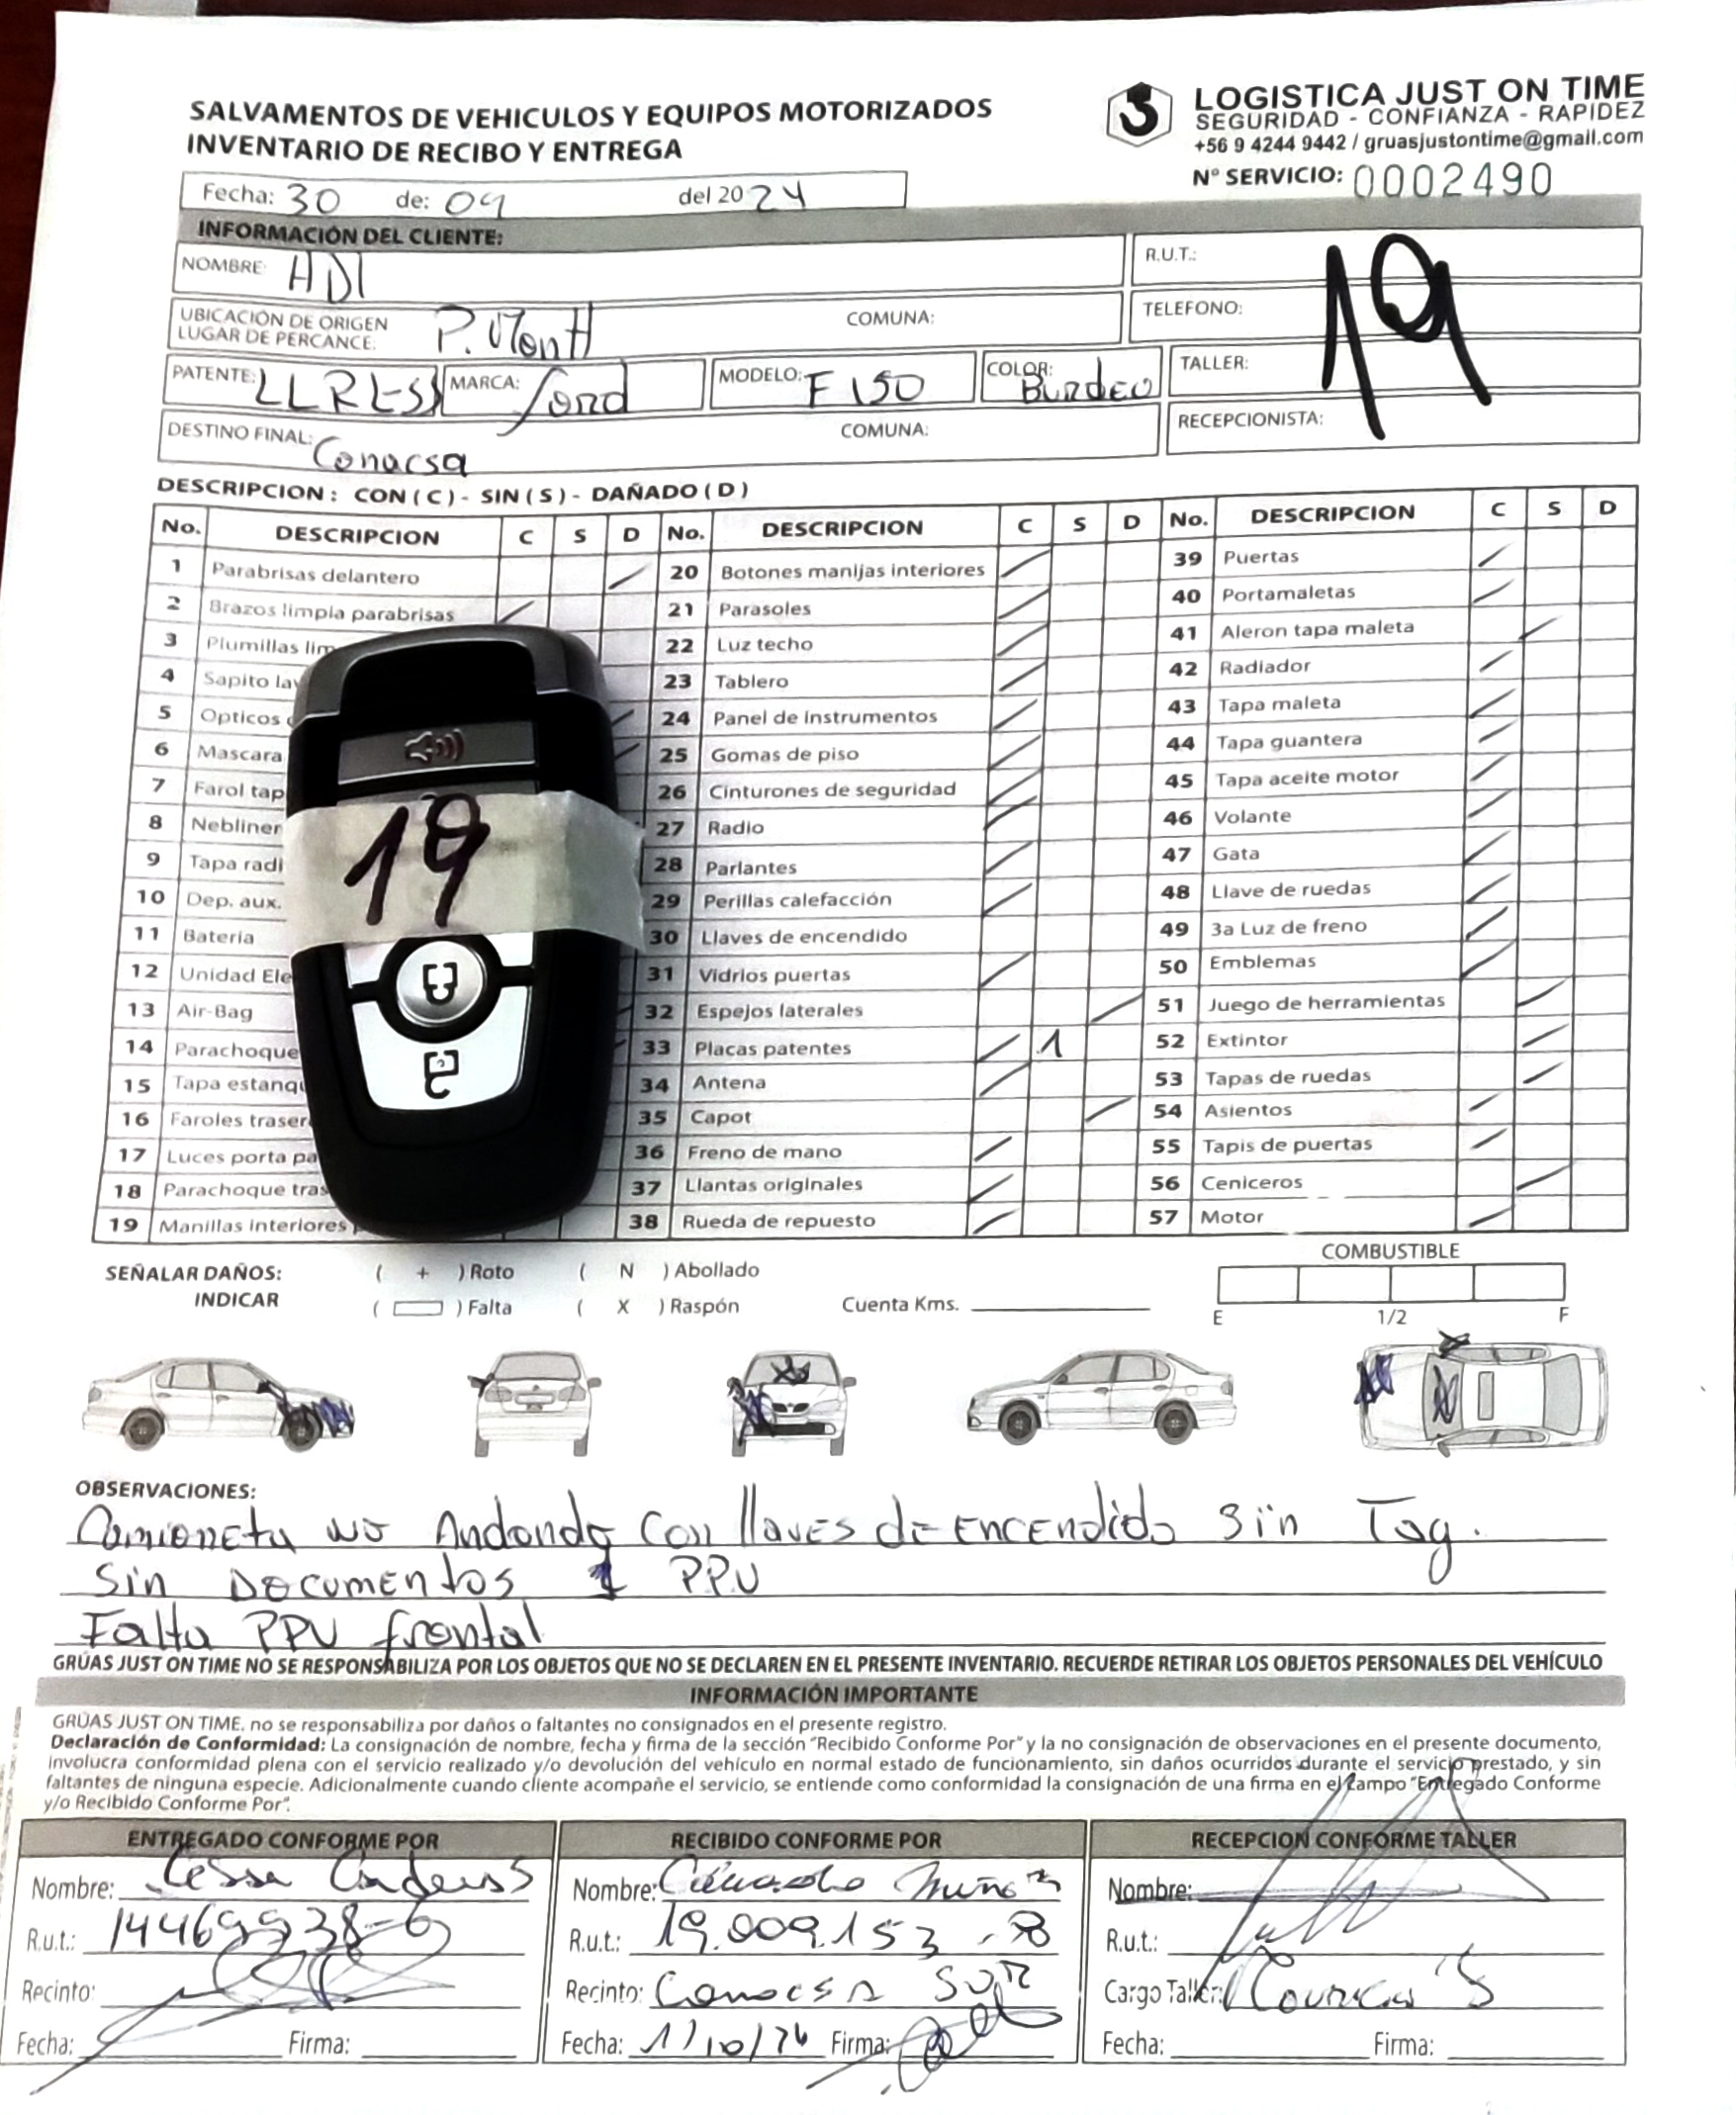 SALVAMENTOS DE VEHICULOS Y EQUIPOS MOTORIZADOS
INVENTARIO DE RECIBO Y ENTREGA
LOGISTICA JUST ON TIME
SEGURIDAD - CONFIANZA - RAPIDEZ
+56 9 4244 9442 / gruasjustontime@gmail.com
Nº SERVICIO: 0002490
Fecha: 30 de: 09 del 2024
INFORMACIÓN DEL CLIENTE:
NOMBRE: HDI
R.U.T.:
19
UBICACIÓN DE ORIGEN
LUGAR DE PERCANCE: P. Montt
COMUNA:
TELEFONO:
PATENTE: MARCA: Ford MODELO: F150 COLOR: Burdeo
TALLER:
DESTINO FINAL: Conacsa COMUNA:
RECEPCIONISTA:
DESCRIPCION : CON ( C ) - SIN ( S ) - DAÑADO ( D )
No. DESCRIPCION C S D No. DESCRIPCION C S D No. DESCRIPCION C S D
1 Parabrisas delantero 20 Botones manijas interiores 39 Puertas
2 Brazos limpia parabrisas 21 Parasoles 40 Portamaletas
3 Plumillas lim 22 Luz techo 41 Aleron tapa maleta
4 Sapito lav 23 Tablero 42 Radiador
5 Opticos 24 Panel de instrumentos 43 Tapa maleta
6 Mascara 25 Gomas de piso 44 Tapa guantera
7 Farol tap 26 Cinturones de seguridad 45 Tapa aceite motor
8 Nebliner 27 Radio 46 Volante
9 Tapa radi 28 Parlantes 47 Gata
10 Dep. aux. 29 Perillas calefacción 48 Llave de ruedas
11 Batería 30 Llaves de encendido 49 3a Luz de freno
12 Unidad Ele 31 Vidrios puertas 50 Emblemas
13 Air-Bag 32 Espejos laterales 51 Juego de herramientas
14 Parachoque 33 Placas patentes 1 52 Extintor
15 Tapa estanq 34 Antena 53 Tapas de ruedas
16 Faroles traser 35 Capot 54 Asientos
17 Luces porta pa 36 Freno de mano 55 Tapis de puertas
18 Parachoque tras 37 Llantas originales 56 Ceniceros
19 Manillas interiores 38 Rueda de repuesto 57 Motor
19
SEÑALAR DAÑOS: ( + ) Roto ( N ) Abollado
INDICAR ( ) Falta ( X ) Raspón Cuenta Kms.
COMBUSTIBLE
E 1/2 F
OBSERVACIONES:
Camioneta no Andando Con llaves de encendido Sin Tag.
Sin Documentos 1 PPU
Falta PPU frontal
GRÚAS JUST ON TIME NO SE RESPONSABILIZA POR LOS OBJETOS QUE NO SE DECLAREN EN EL PRESENTE INVENTARIO. RECUERDE RETIRAR LOS OBJETOS PERSONALES DEL VEHÍCULO
INFORMACIÓN IMPORTANTE
GRÚAS JUST ON TIME, no se responsabiliza por daños o faltantes no consignados en el presente registro.
Declaración de Conformidad: La consignación de nombre, fecha y firma de la sección "Recibido Conforme Por" y la no consignación de observaciones en el presente documento,
involucra conformidad plena con el servicio realizado y/o devolución del vehículo en normal estado de funcionamiento, sin daños ocurridos durante el servicio prestado, y sin
faltantes de ninguna especie. Adicionalmente cuando cliente acompañe el servicio, se entiende como conformidad la consignación de una firma en el campo "Entregado Conforme
y/o Recibido Conforme Por".
ENTREGADO CONFORME POR
Nombre:
R.u.t.: 14469938-6
Recinto:
Fecha: Firma:
RECIBIDO CONFORME POR
Nombre: Muñoz
R.u.t.: 19.009.153-8
Recinto: Conacsa SUR
Fecha: 1/10/24 Firma:
RECEPCION CONFORME TALLER
Nombre:
R.u.t.:
Cargo Taller:
Fecha: Firma: